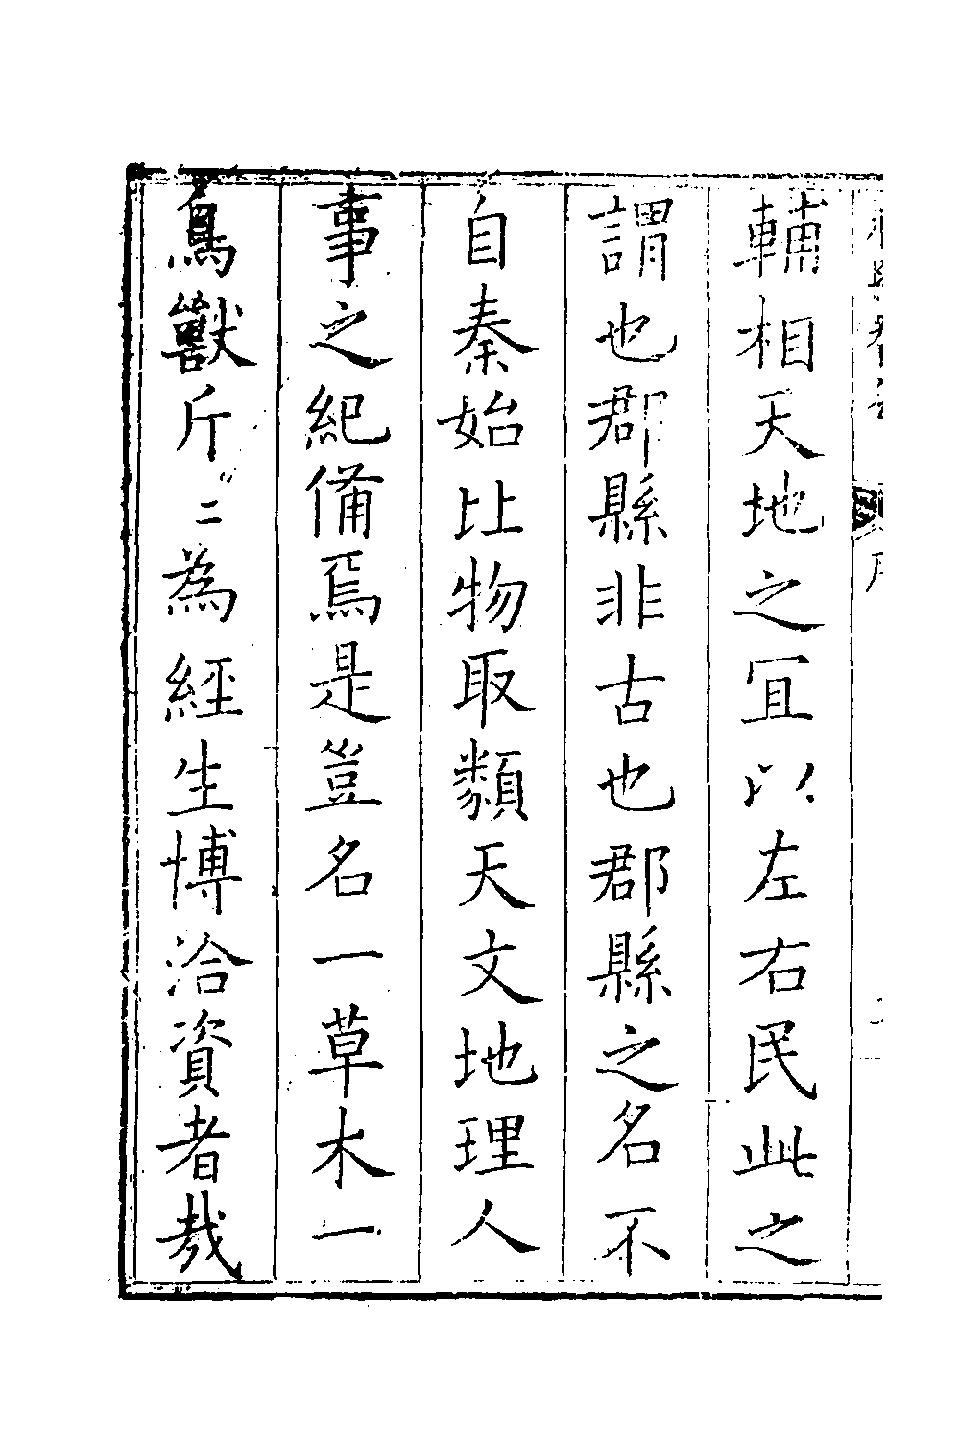 輔相天地之宜以左右民此之
謂也郡縣非古也郡縣之名不
自秦始比物取類天文地理人
事之紀備焉是豈名一草木一
鳥獸斤〻為經生博洽資者哉